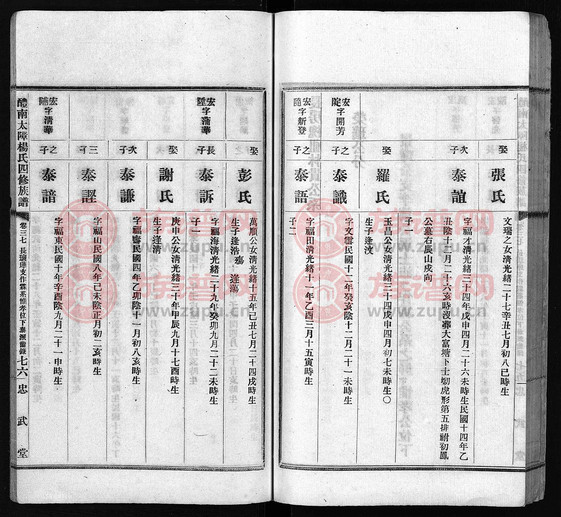 娶 張氏
文瑞之女清光緒二十七年辛丑七月初八巳時生
次子 泰誼
字福才清光緒三十四年戊申二月二十六未時生民國十四年乙
丑陰十二月二十六亥時沒葬大富塘卜士蚴虎形第五排祔初鳳
公墓右辰山戌向
娶 羅氏
玉昌公女清光緒三十四戊申四月初七未時生〇
子一
宏院字開芳 之子 泰識
字文雲民國十二年癸亥陰十二月二十一未時生
生子逢汶
宏隨字新登 之子 泰語
字福田清光緒十一年乙酉三月十五寅時生
子二
娶 彭氏
萬順公女清光緒十五年己丑七月二十四戌時生
生子逢浩 逢湯
宏陸字蒲華 長子 泰訴
字福海清光緒二十九年癸卯九月二十二未時生
子一
娶 謝氏
庚申公女清光緒三十年甲辰九月十七酉時生
生子逢清
次子 泰謙
字福容民國四年乙卯陰十一月初八亥時生
三子 泰誙
字福山民國八年己未陰正月初二亥時生
宏隨字清華 之子 泰諳
字福東民國十年辛酉陰九月二十一申時生
醴南太障楊氏四修族譜
卷三七
七六
忠武堂
族譜网
www.zupu.cn